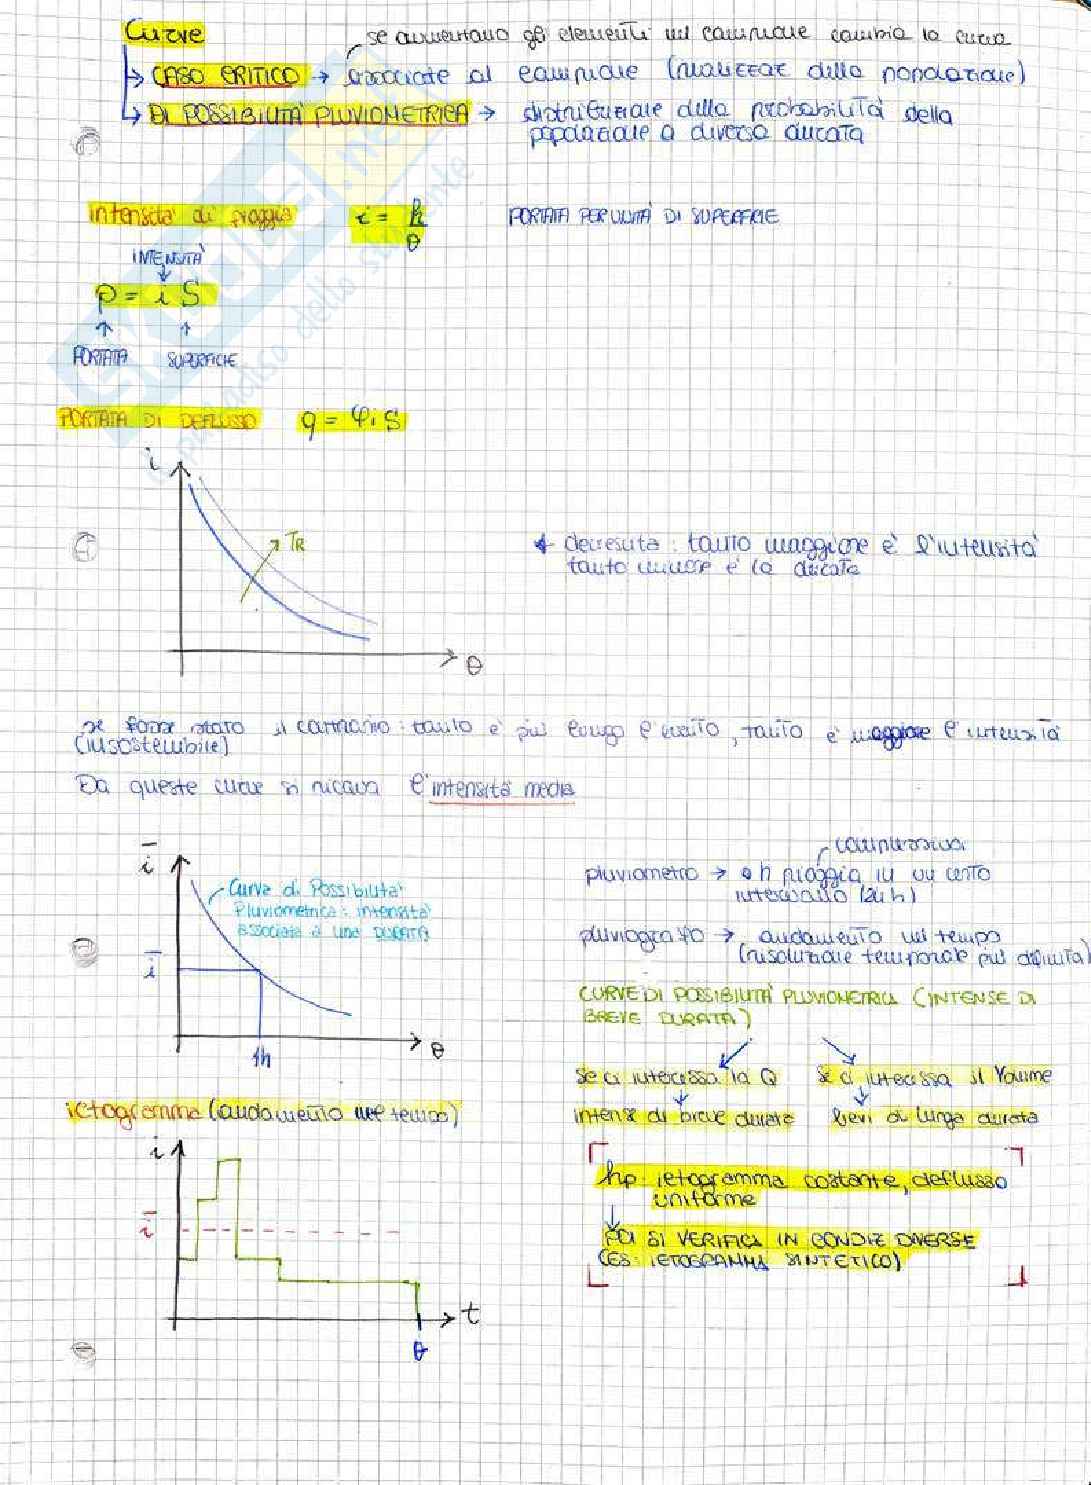 Curve
se aumentano gli elementi nel campione cambia la curva
CASO CRITICO → associate al campione (realizzaz della popolazione)
DI POSSIBILITA' PLUVIOMETRICA → distribuzione della probabilità della
popolazione a diversa durata
intensita' di pioggia i = h/θ PORTATA PER UNITA' DI SUPERFICIE
INTENSITA'
p = i S
PORTATA SUPERFICIE
PORTATA DI DEFLUSSO q = φ i S
i
TR
θ
decresce: tanto maggiore è l'intensità
tanto minore è la durata
se fosse stato il contrario: tanto è più lungo l'evento, tanto è maggiore l'intensità
(insostenibile)
Da queste curve si ricava l'intensità media
i
Curva di Possibilita'
Pluviometrica: intensita'
associata a una DURATA
i
1h
θ
complessiva
pluviometro → h pioggia in un certo
intervallo (24h)
pluviografo → andamento nel tempo
(risoluzione temporale più definita)
CURVE DI POSSIBILITA' PLUVIOMETRICA (INTENSE DI
BREVE DURATA)
Se ci interessa la Q
intense di breve durata
Se ci interessa il Volume
lievi di lunga durata
ietogramma (andamento nel tempo)
i
i
t
θ
hp ietogramma costante, deflusso
uniforme
POI SI VERIFICA IN CONDIZ DIVERSE
(ES: IETOGRAMMA SINTETICO)
SKUOLA.net
il paradiso dello studente